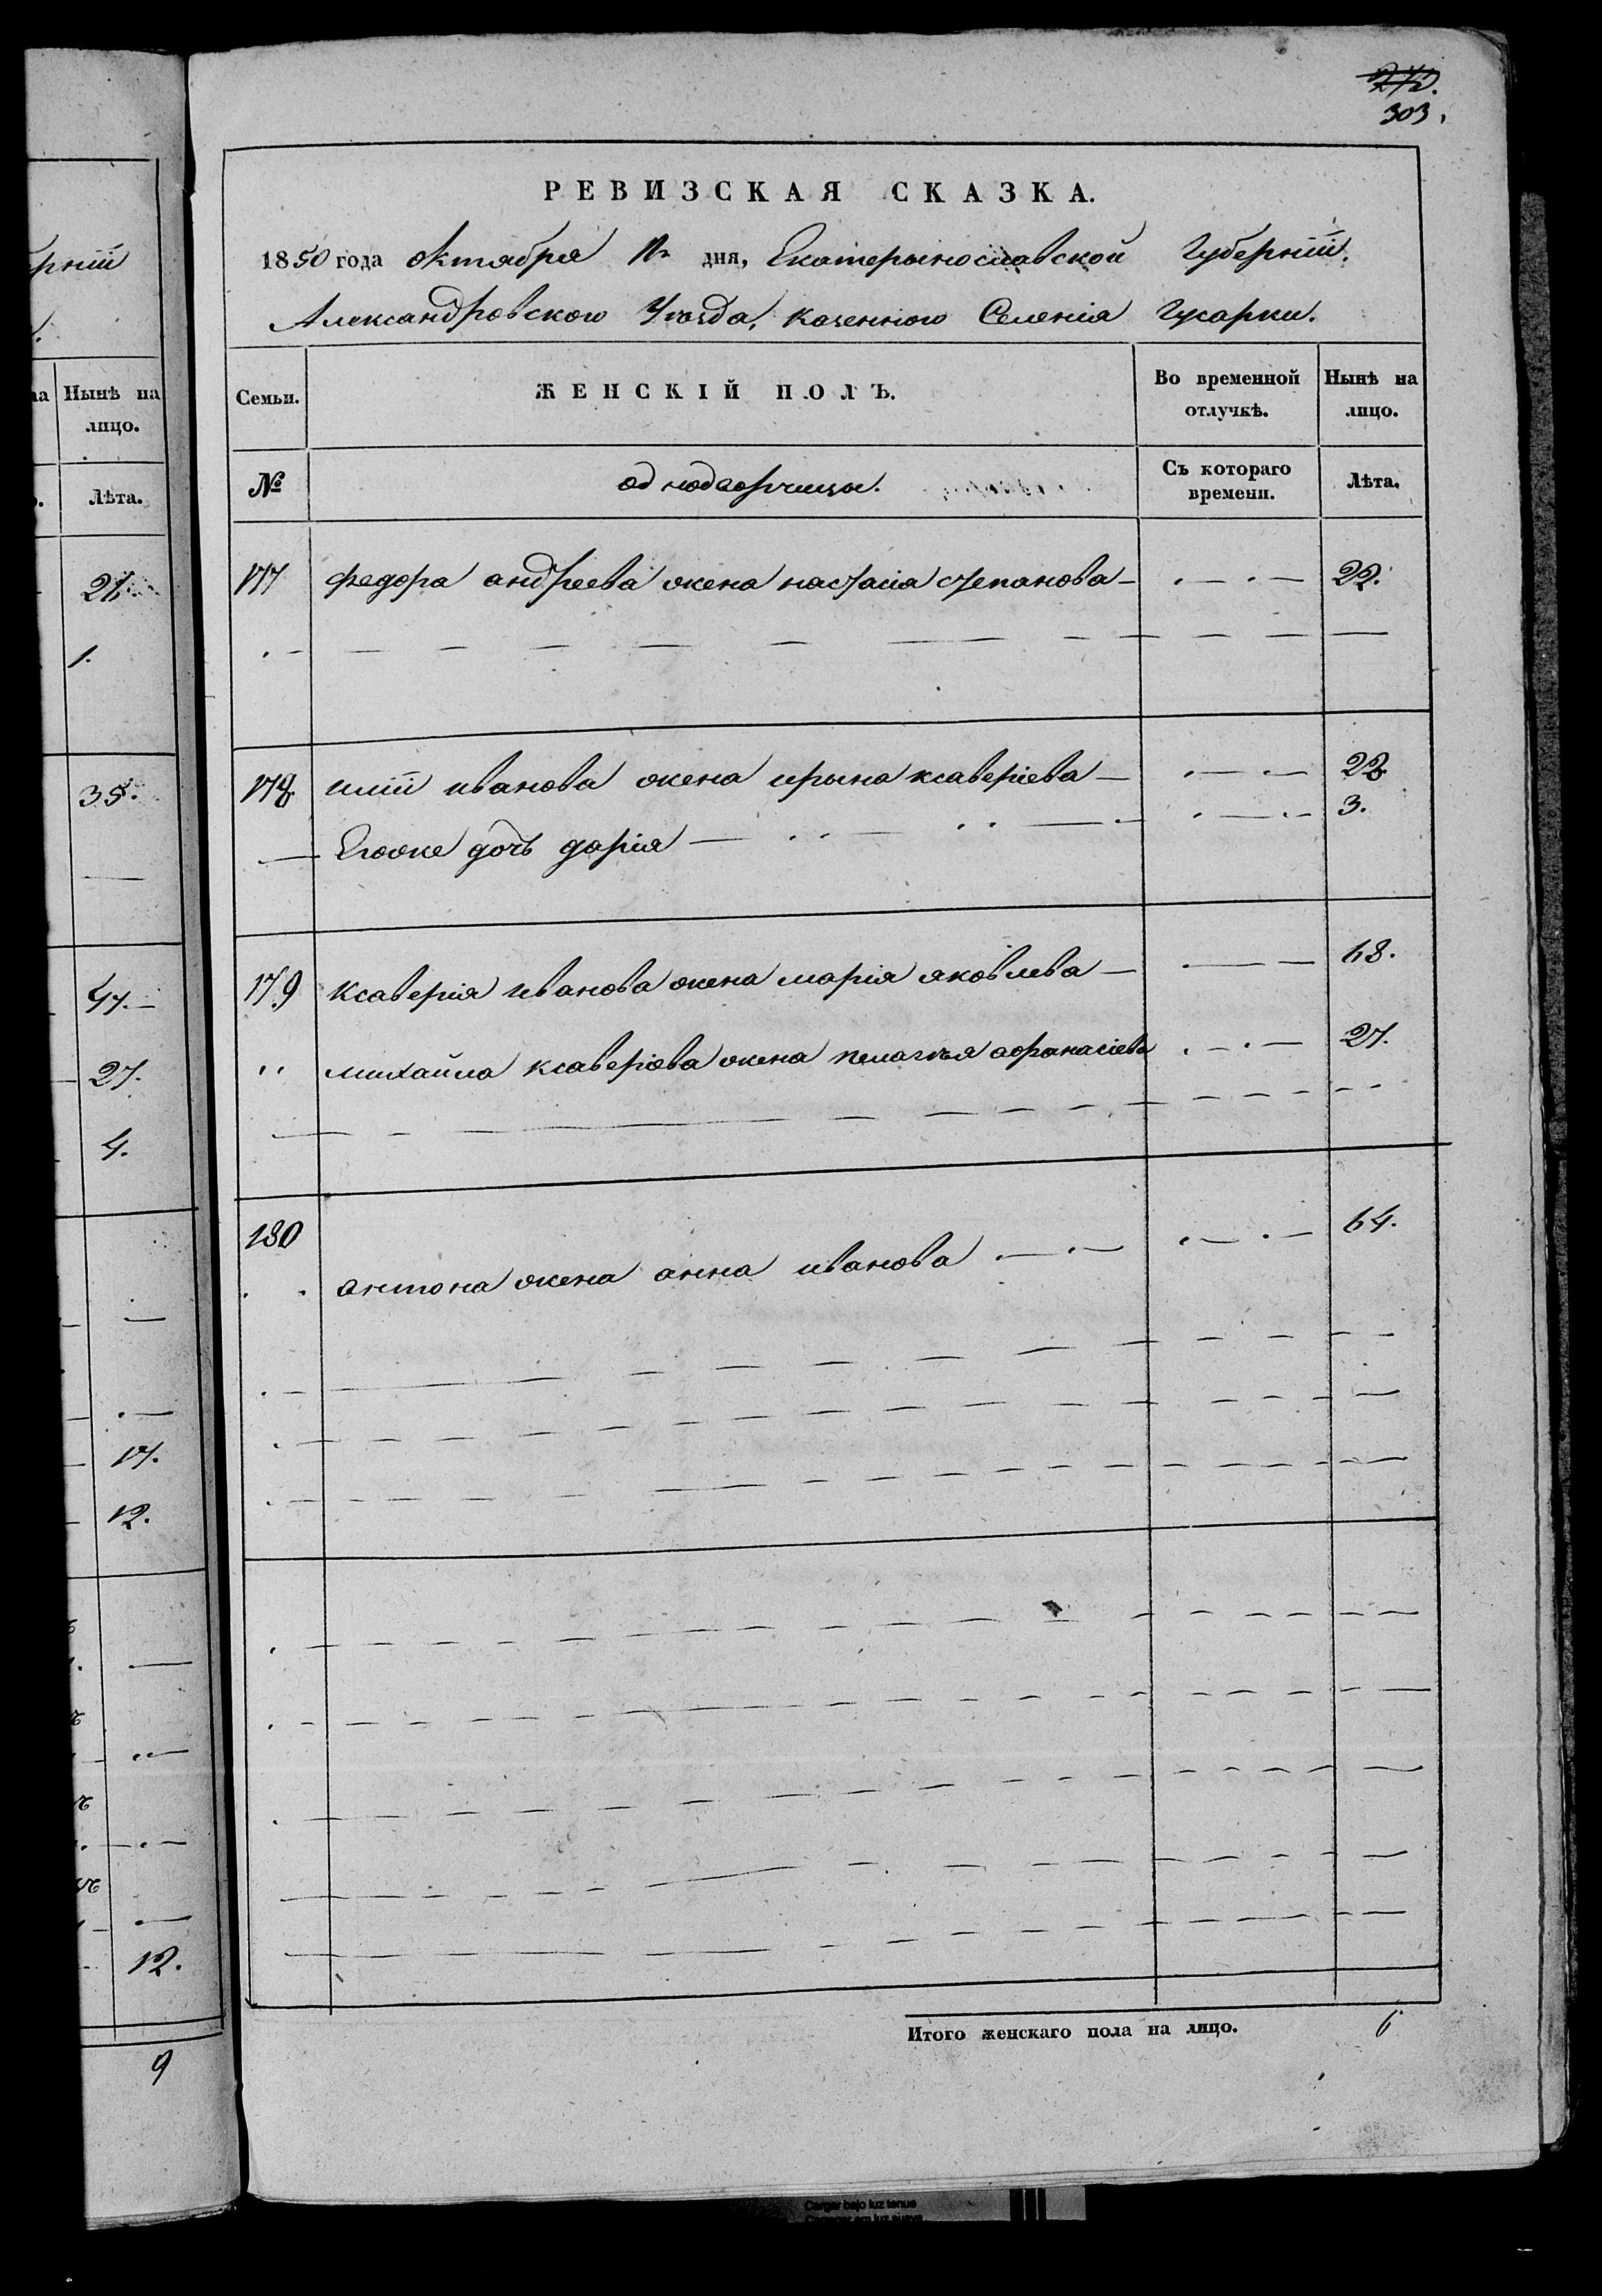 рній
Нынѣ на
лицо.
Лѣта.
21.
1.
35.
27.
4.
17.
12.
12.
9
303.
РЕВИЗСКАЯ СКАЗКА.
1850 года октября дня, Екатерынославской Губерніи.
Александровского Уѣзда, Казенного Селенія Гусарки.
Семьи.
ЖЕНСКІЙ ПОЛЪ.
Во временной отлучкѣ.
Нынѣ на лицо.
№
однодворчицы.
Съ котораго времени.
Лѣта.
177 федора андреева жена настасіа степанова 22.
178 иліи иванова жена ирына ксаверіева 22
Егоже дочь дарія 3.
179 ксаверія иванова жена марія яковлева 68.
михайла ксаверіева жена пелагѣя афанасіева 27.
180
антона жена анна иванова 64.
Итого женскаго пола на лицо. 6
Cargar bajo luz tenue